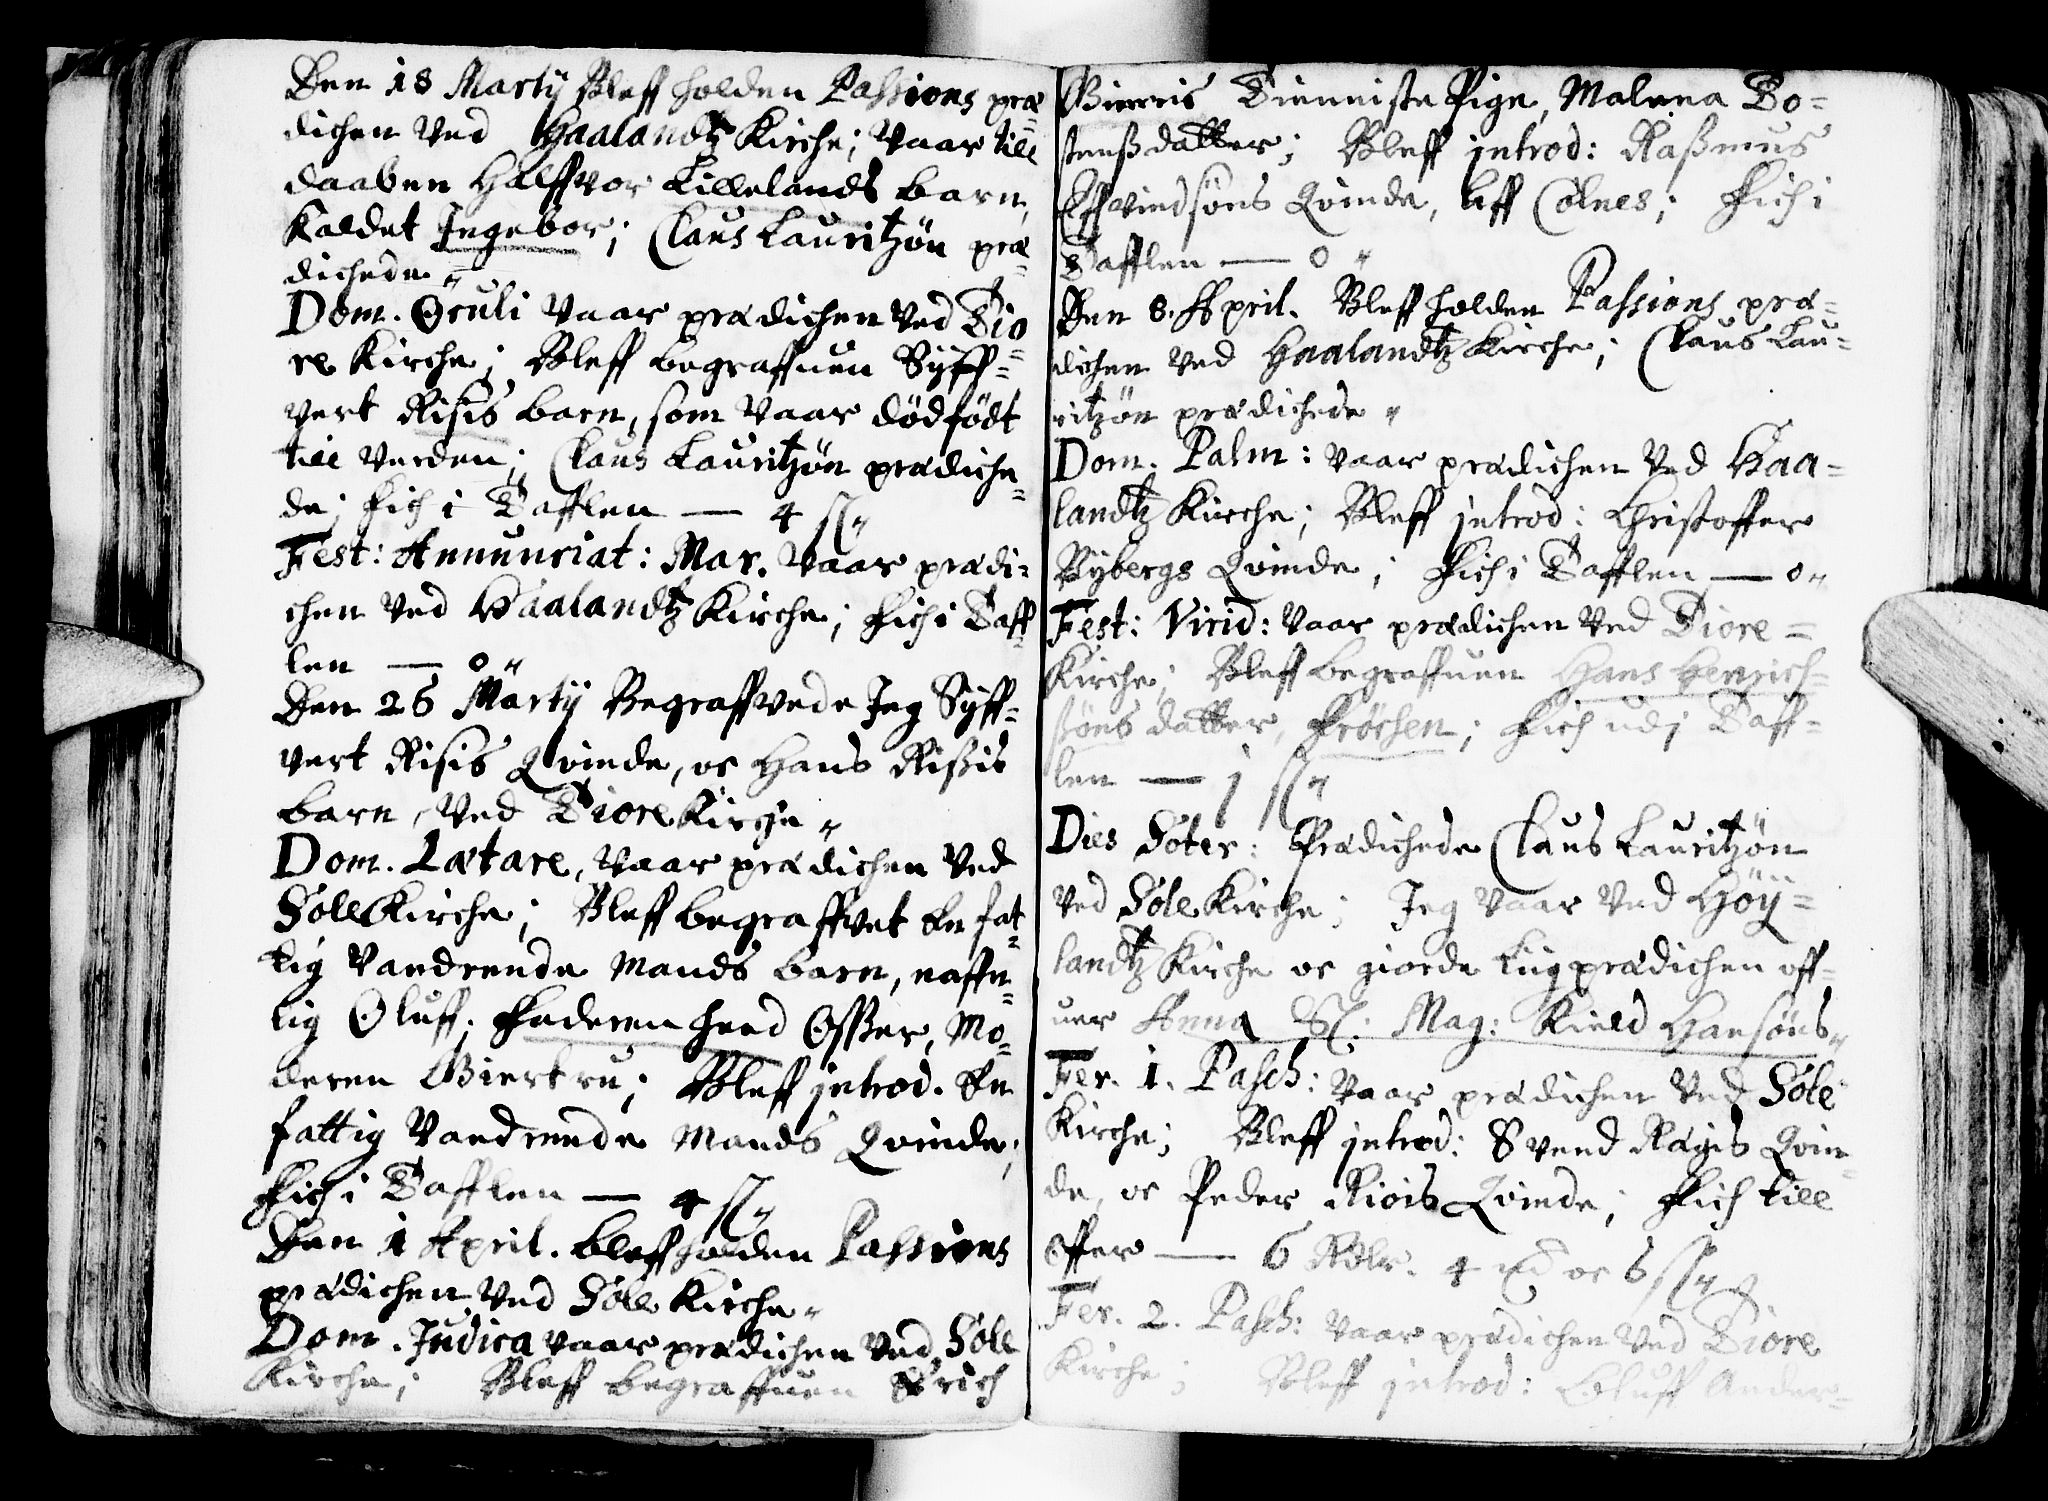 Den 18 Martij Bleff holden Passions præ=
dichen Ved Haalandtz Kirche; Vaar till
daaben Halffvor Lillelands barn,
kaldet Ingebor; Claus Lauritzøn præ=
dichede„
Dom. Oculi Vaar prædichen Ved Tio=
re Kirche; Bleff begraffuen Syff=
vert Risis barn, som Vaar dødfødt
till Verden; Claus Lauritzøn prædiche=
de; Fich i Tafflen — 4 ß„
Fest: Annunciat: Mar. Vaar prædi=
chen Ved Haalandtz Kirche; Fich i Taff=
len — 0„
Den 26 Martij Begraffvede Jeg Syff=
vert Risis Qvinde, oc Hans Rißis
barn, Ved Tiore Kirche„
Dom. Lætare, Vaar prædichen Ved
Sole Kirche; Bleff begraffvet En fat=
tig Vandrende Mands barn, naffn=
lig Oluff; Faderen heed Osser, Mo=
deren Giertru; Bleff introd. En
fattig Vandrende Mands Qvinde;
Fich i Tafflen — 4 ß„
Den 1 April. bleff holden Passions
prædichen Ved Sole Kirche„
Dom. Judica vaar prædichen Ved Sole
Kirche; Bleff begraffuen Erich
Tienniste Pige, Malena To=
stensdatter; Bleff introd: Raßmus
Effvindsøns Qvinde, aff Cølnes; Fich i
Tafflen — 0„
Den 8. April. Bleff holden Passions præ=
dichen Ved Haalandtz Kirche; Claus Lau=
ritzøn prædichede„
Dom. Palm: Vaar prædichen Ved Haa=
landtz Kirche; Bleff introd: Christoffer
Rybergs Qvinde; Fich i Tafflen — 0„
Fest: Virid: Vaar prædichen Ved Tiore=
Kirche; Bleff begraffuen Hans Henrich=
søns datter, Frøchen; Fich udj Taff=
len — 1 ß„
Dies Soter: Prædichede Claus Lauritzøn
Ved Sole Kirche; Jeg Vaar Ved Høy=
landtz Kirche oc giorde Liigprædichen off=
uer Anna Sl: Mag: Kield Hansøns„
Fer. 1. Pasch: Vaar prædichen Ved Sole
Kirche; Bleff introd: Svend Rægis Qvin=
de, oc Peder Riois Qvinde; Fich till
Offer — 6 Rdlr. 4 oc 6 ß„
Fer. 2. Pasch: Vaar prædichen Ved Tiore
Kirche; Bleff introd: Eoluff Ander=